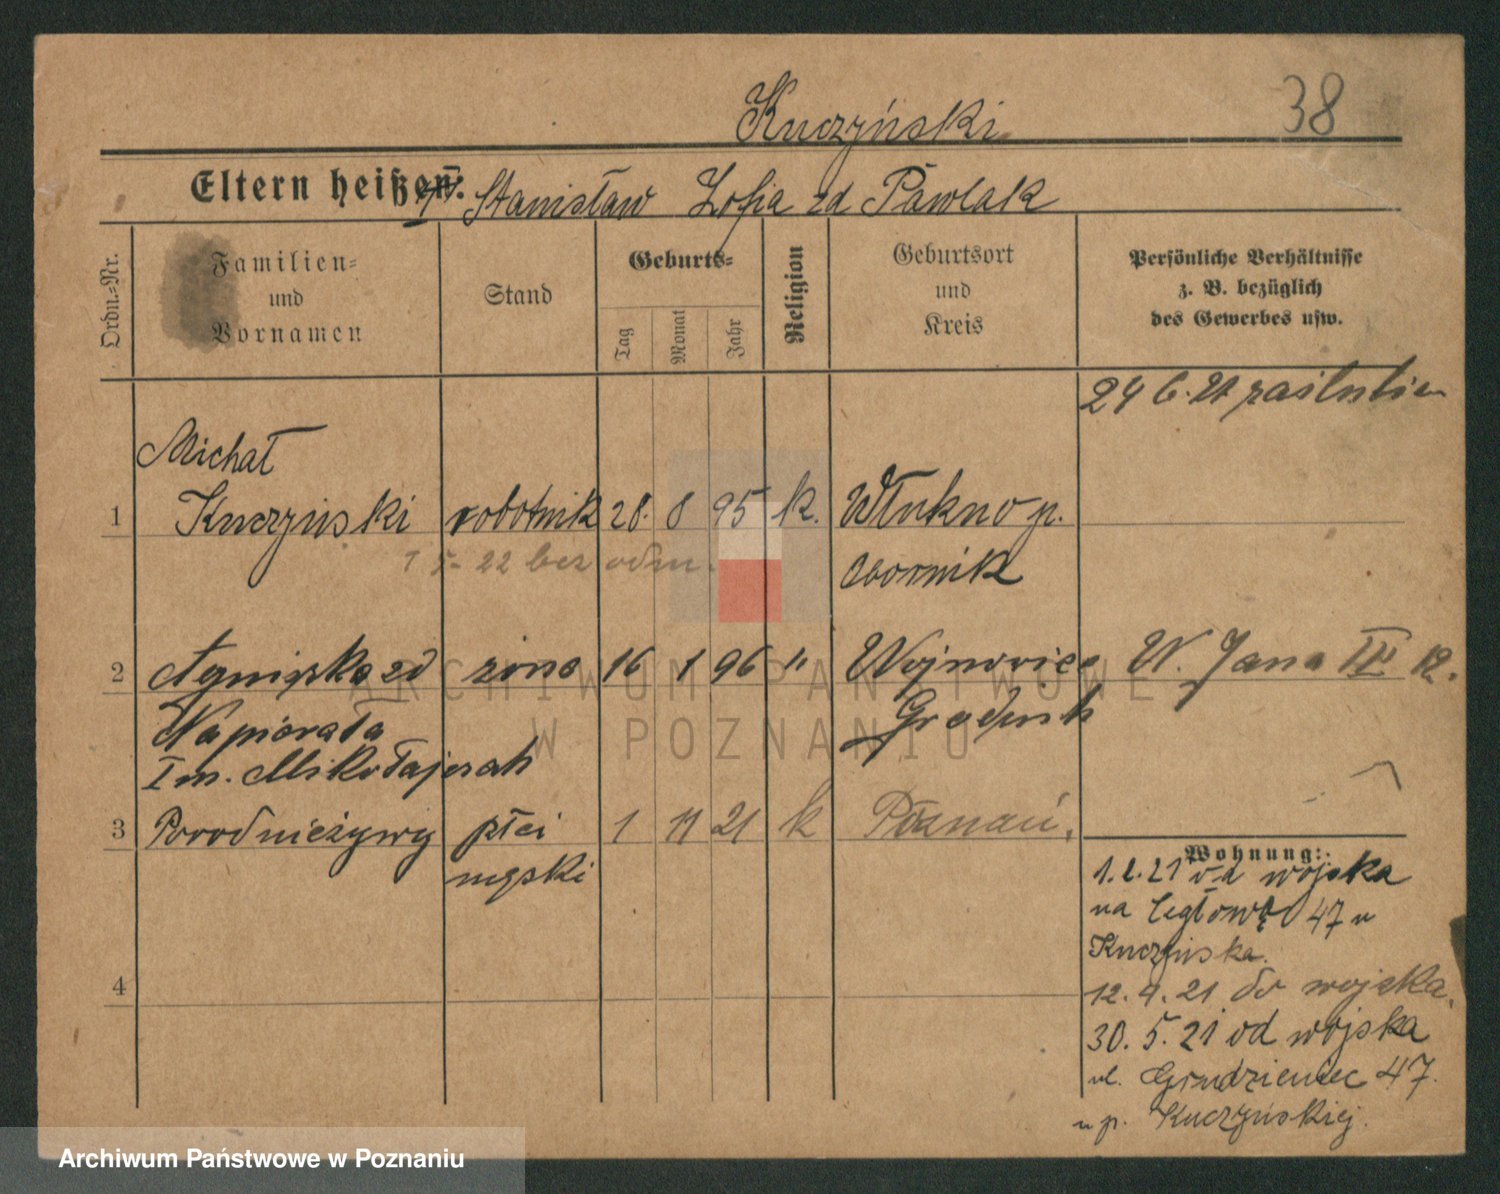 Kuczyński 38
Eltern heißen: Stanisław Zofia zd Pawlak
Ordn.-Nr.
Familien- und Vornamen
Stand
Geburts-
Tag Monat Jahr
Religion
Geburtsort und Kreis
Persönliche Verhältnisse
z. B. bezüglich
des Gewerbes usw.
24 6. 21 zaślubien
Michał
1 Kuczyński robotnik 28. 8 95 k. Włukno p.
5- 22 bez odm.
Obornik
2 Agnieszka zd żona 16 1 96 " Wojnowice W. Jana III 12.
Napierała Grodzisk
Im. Mikołajczak
3 Porod nieżywy płci 1 11 21 k Poznań.
męski
Wohnung:
1. 2. 21 od wojska
na Cegłowę 47 u
Kuczyńska.
4
12. 4. 21 do wojska.
30. 5. 21 od wojska
ul. Grudzieniec 47.
u p. Kuczyńskiej.
ARCHIWUM PAŃSTWOWE
W POZNANIU
Archiwum Państwowe w Poznaniu